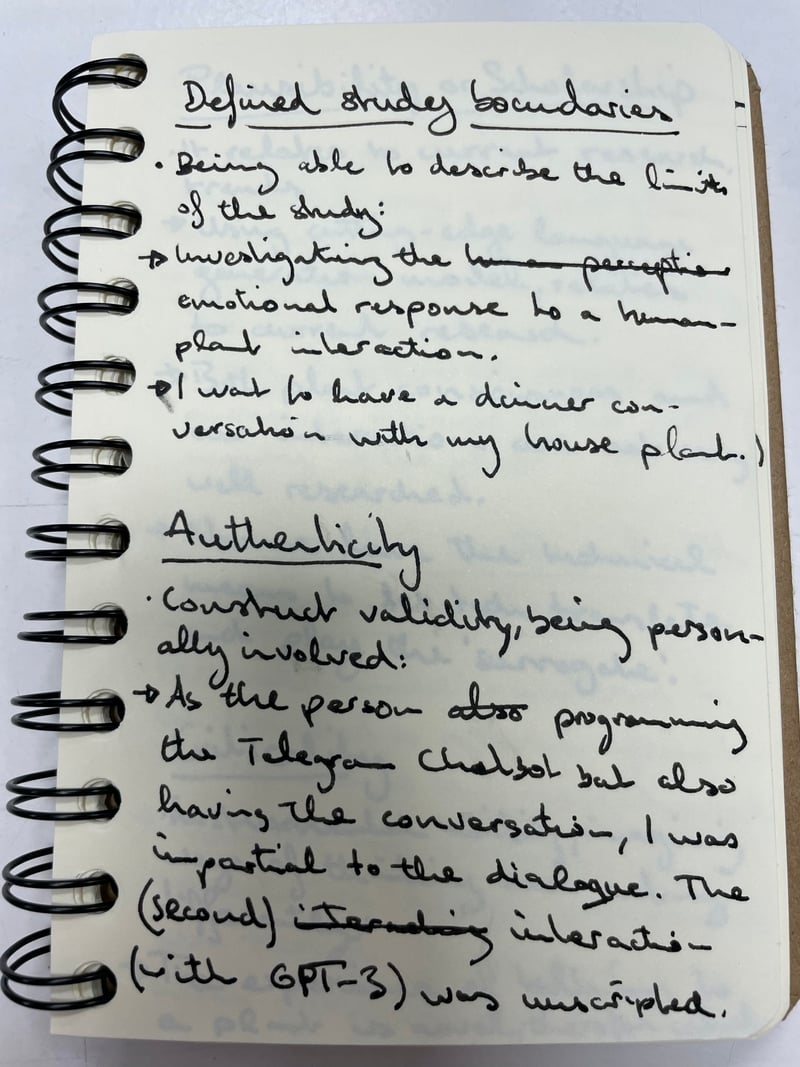 Defined study boundaries
· Being able to describe the limits
of the study:
→ Investigating the human perception
emotional response to a human-
plant interaction.
→ I want to have a dinner con-
versation with my house plant.)
Authenticity
· Construct validity, being person-
ally involved:
→ As the person also programming
the Telegram Chatbot but also
having the conversation, I was
impartial to the dialogue. The
(second) interaction
(with GPT-3) was unscripted.